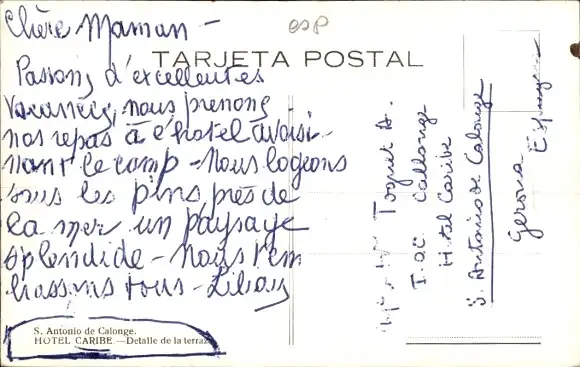 esp
TARJETA POSTAL
Chère Maman -
Passons d'excellentes
vacances, nous prenons
nos repas à l'hotel avoisi-
nant le camp - Nous logeons
sous les pins près de
la mer un paysage
splendide - Nous t'em
brassons tous -
S. Antonio de Calonge.
HOTEL CARIBE.—Detalle de la terraz
Toquet A.
T.OC. Callonge
Hotel Caribe
S. Antonio de Calonge
Gerona